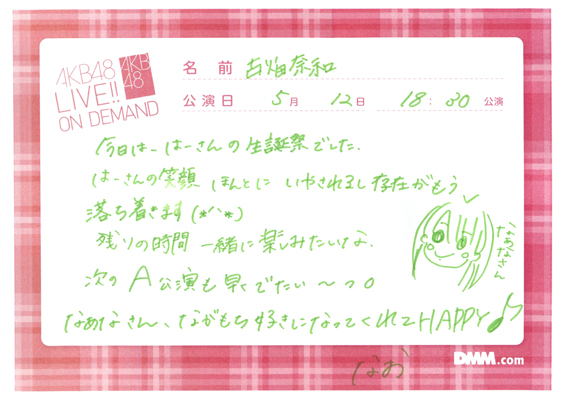 AKB48
LIVE!!
ON DEMAND
AKB
48
名前 古畑奈和
公演日 5月 12日 18:30 公演
今日はーはーさんの生誕祭でした.
はーさんの笑顔 ほんとに いやされるし存在がもう
落ち着きます(*´^`*)
残りの時間 一緒に楽しみたいな.
次のA公演も早くでたい〜つ。
なぁなさん
なぁなさん、ながもち好きになってくれてHAPPY♪
なお
DMM.com